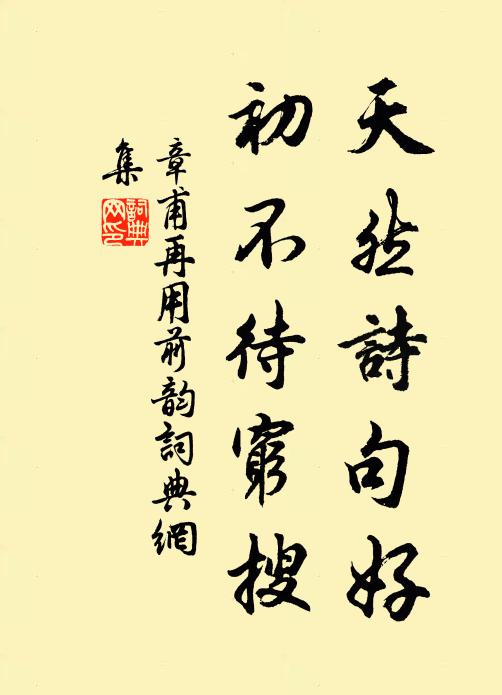 天然詩句好
初不待窮搜
章甫再用前韵詞典網
集
詞典網印